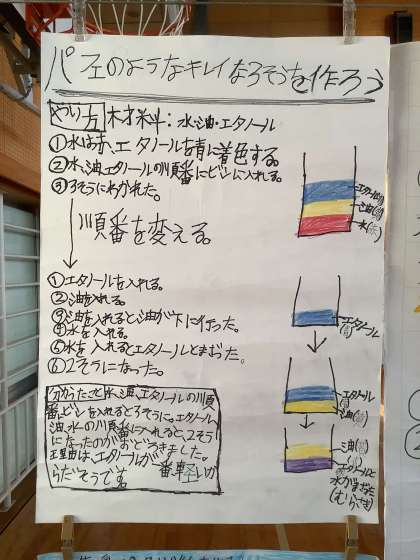 パフェのようなキレイなろそうを作ろう
やり方 材料：水、油・エタノール
①水は赤、エタノールを青に着色する。
②水、油、エタノールの順番にビンに入れる。
③3そうにわかれた。
順番を変える。
①エタノールを入れる。
②油を入れる。
③油を入れると油が下に行った。
④水を入れる。
⑤水を入れるとエタノールとまざった。
⑥2そうになった。
分かったこと 水、油、エタノールの順
番にビンを入れると3そうに。エタノール、
油、水の順番に入れると、2そう
になったのがおどろきました。
理由は、エタノールが一番軽いか
らだそうです。
エタノール(青)
油(黄)
水(赤)
エタノール
(青)
エタノール
(青)
油(黄)
油(黄)
エタノールと
水がまざった
(むらさき)